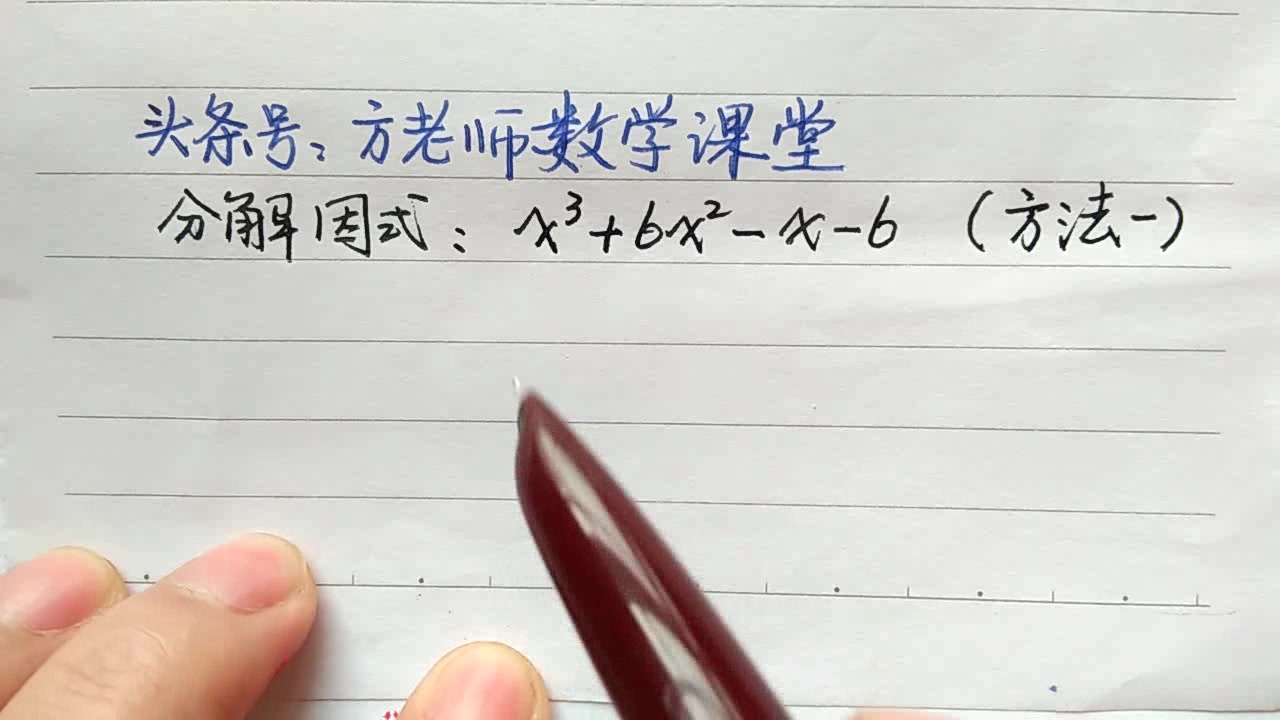 头条号：方老师数学课堂
分解因式：x³+6x²-x-6（方法一）